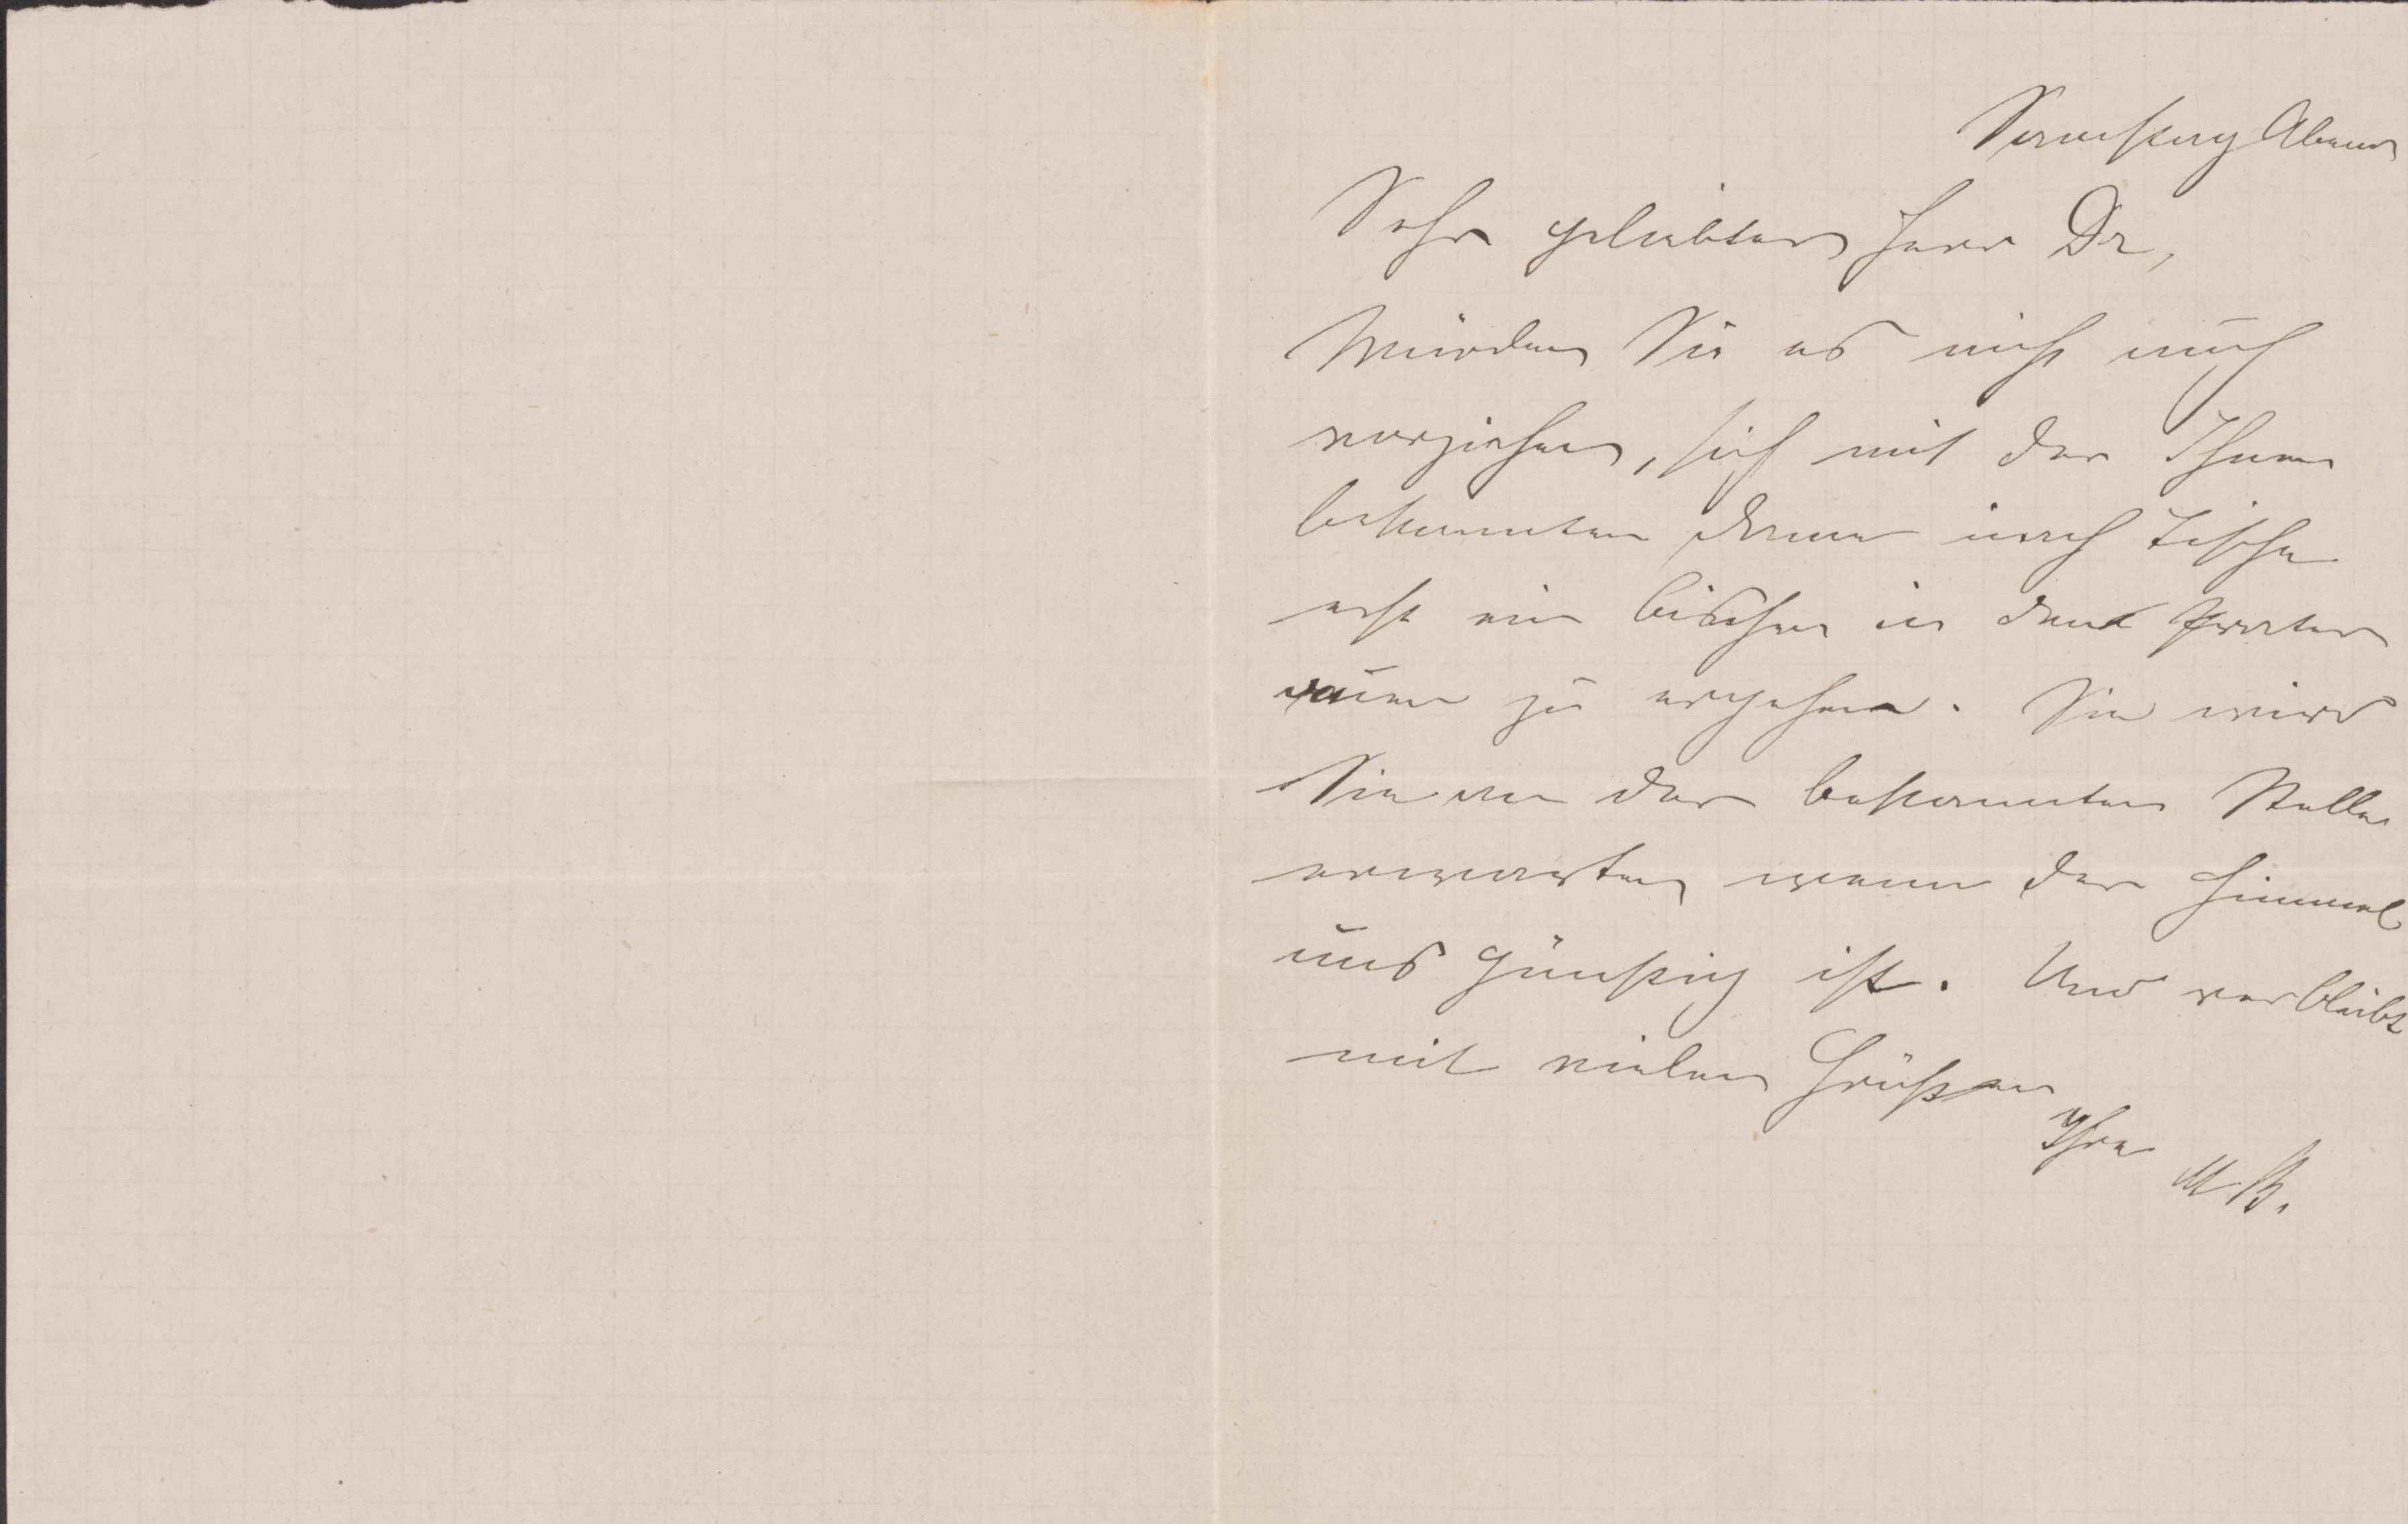 Samstag Abend
Sehr geliebter Herr Dr,
Würden Sie es nicht auch
vorziehen, sich mit der Ihnen
bekannten Dame nach Tische
erst ein bischen in den Prater
auen zu ergehen. Sie wird
Sie an der bekannten Stelle
erwarten, wenn der Himmel
uns günstig ist. Und verbleibt
mit vielen Grüßen
Ihre